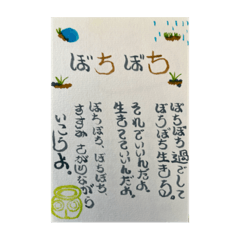 ぼちぼち
ぼちぼち過ごして
ぼちぼち生きる。
それでいいんだよ。
生きてていいんだよ。
ぼちぼち、ぼちぼち、
すすみ ながら
いこうよ。